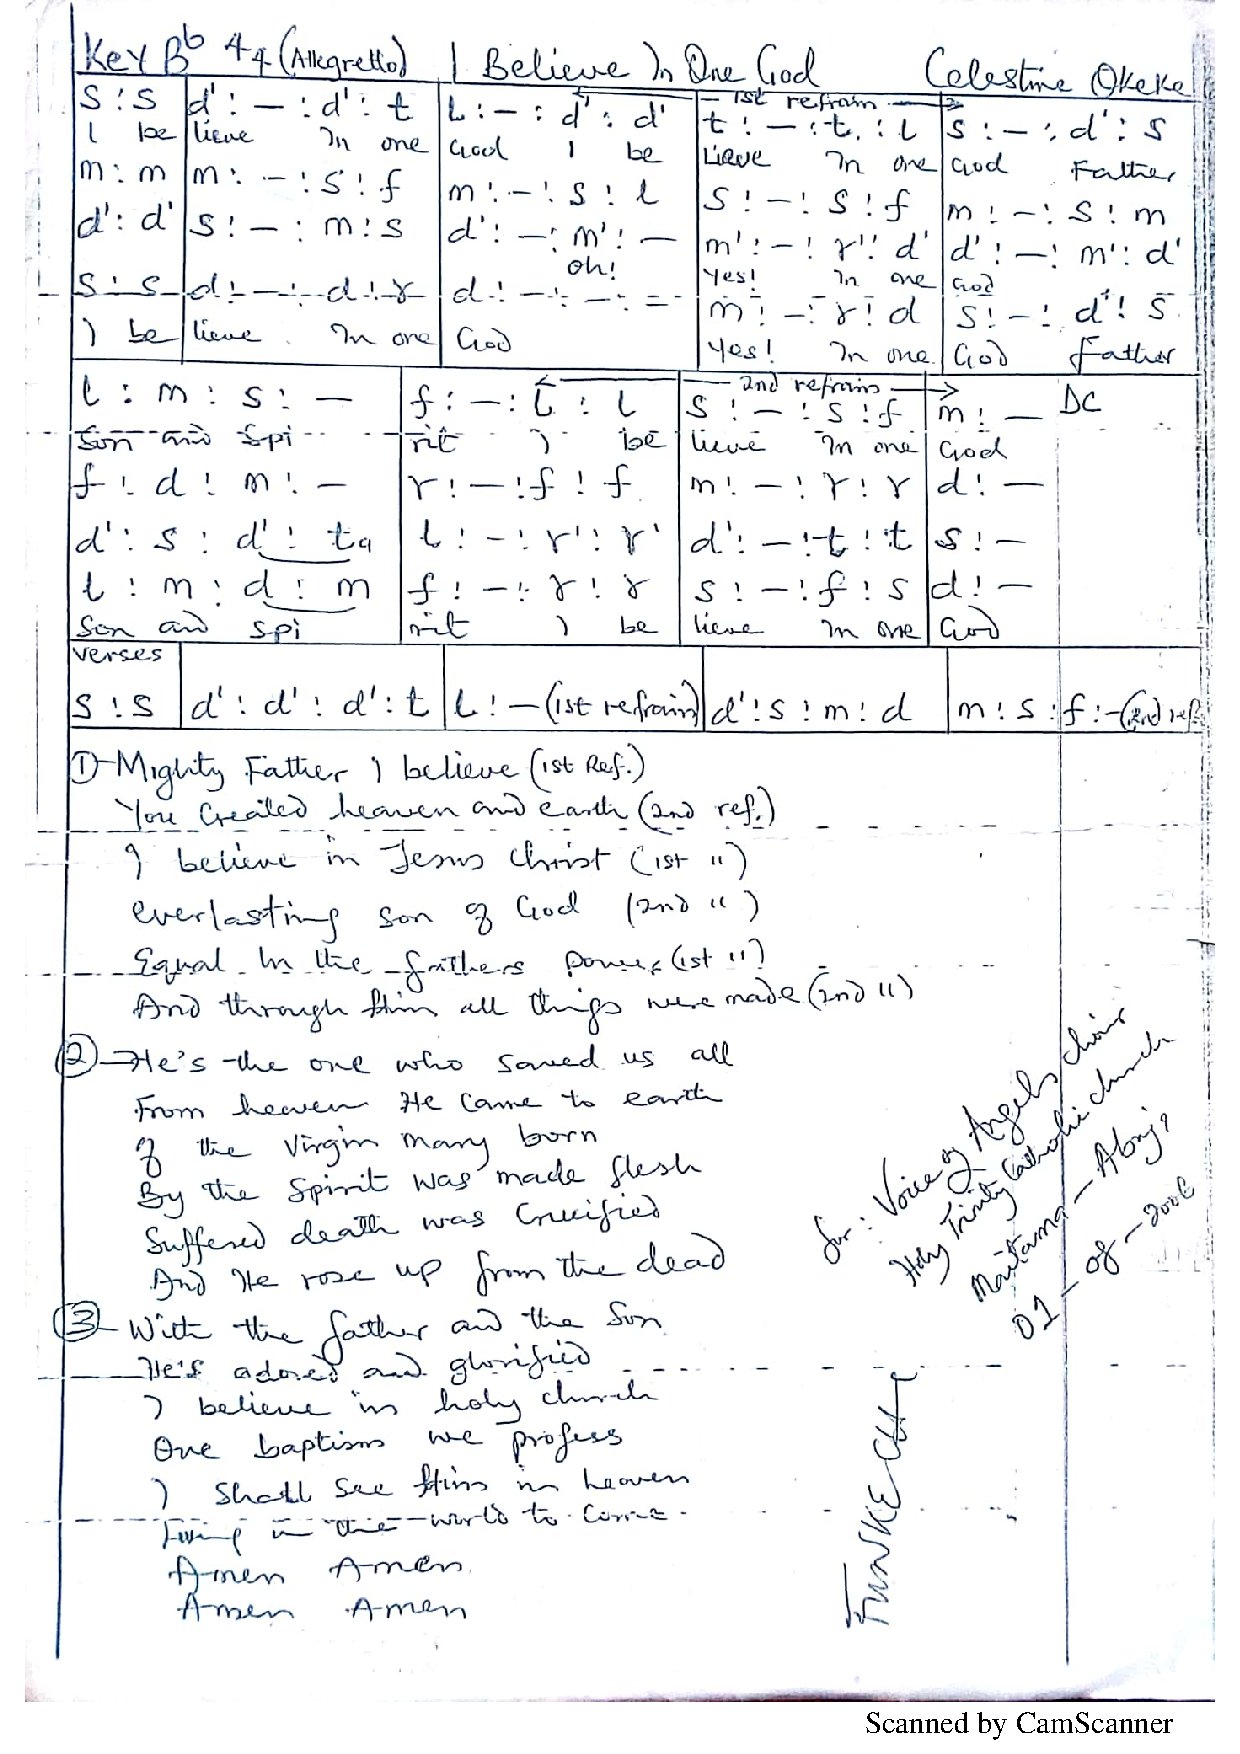 Key Bb 44 (Allegretto) I Believe In One God Celestine Okeke
s : s | d' : — : d' : t | l : — : d' : d' | t : — : t : l | s : — : d' : s
1st refrain
I be | lieve In one | God I be | lieve In one | God Father
m : m | m : — : s : f | m : — : s : l | s : — : s : f | m : — : s : m
d' : d' | s : — : m : s | d' : — : m' : — | m' : — : r' : d' | d' : — : m' : d'
oh! | Yes! In one | God
s : s | d : — : d : r | d : — : — : — | m : — : r : d | s : — : d' : s
I be | lieve In one | God | Yes! In one | God Father
l : m : s : — | f : — : l : l | s : — : s : f | m : — DC
2nd refrain
Son and Spi | rit I be | lieve In one | God
f : d : m : — | r : — : f : f | m : — : r : r | d : —
d' : s : d' : ta | l : — : r' : r' | d' : — : t : t | s : —
l : m : d : m | f : — : r : r | s : — : f : s | d : —
Son and Spi | rit I be | lieve In one | God
verses
s : s | d' : d' : d' : t | l : — (1st refrain) | d' : s : m : d | m : s : f : — (2nd ref.
① Mighty Father I believe (1st Ref.)
You Created heaven and earth (2nd ref.)
I believe in Jesus Christ (1st ")
Everlasting son of God (2nd ")
Equal In the fathers power (1st ")
And through Him all things were made (2nd ")
② He's the one who saved us all
From heaven He came to earth
Of the Virgin Mary born
By the Spirit was made flesh
Suffered death was Crucified
And He rose up from the dead
③ With the father and the Son
He's adored and glorified
I believe in holy church
One baptism we profess
I shall see Him in heaven
Living in the world to come
Amen Amen
Amen Amen
for: Voice of Angels choir
Holy Trinity Catholic church
Maitama - Abuja
01 - 08 - 2006
Scanned by CamScanner